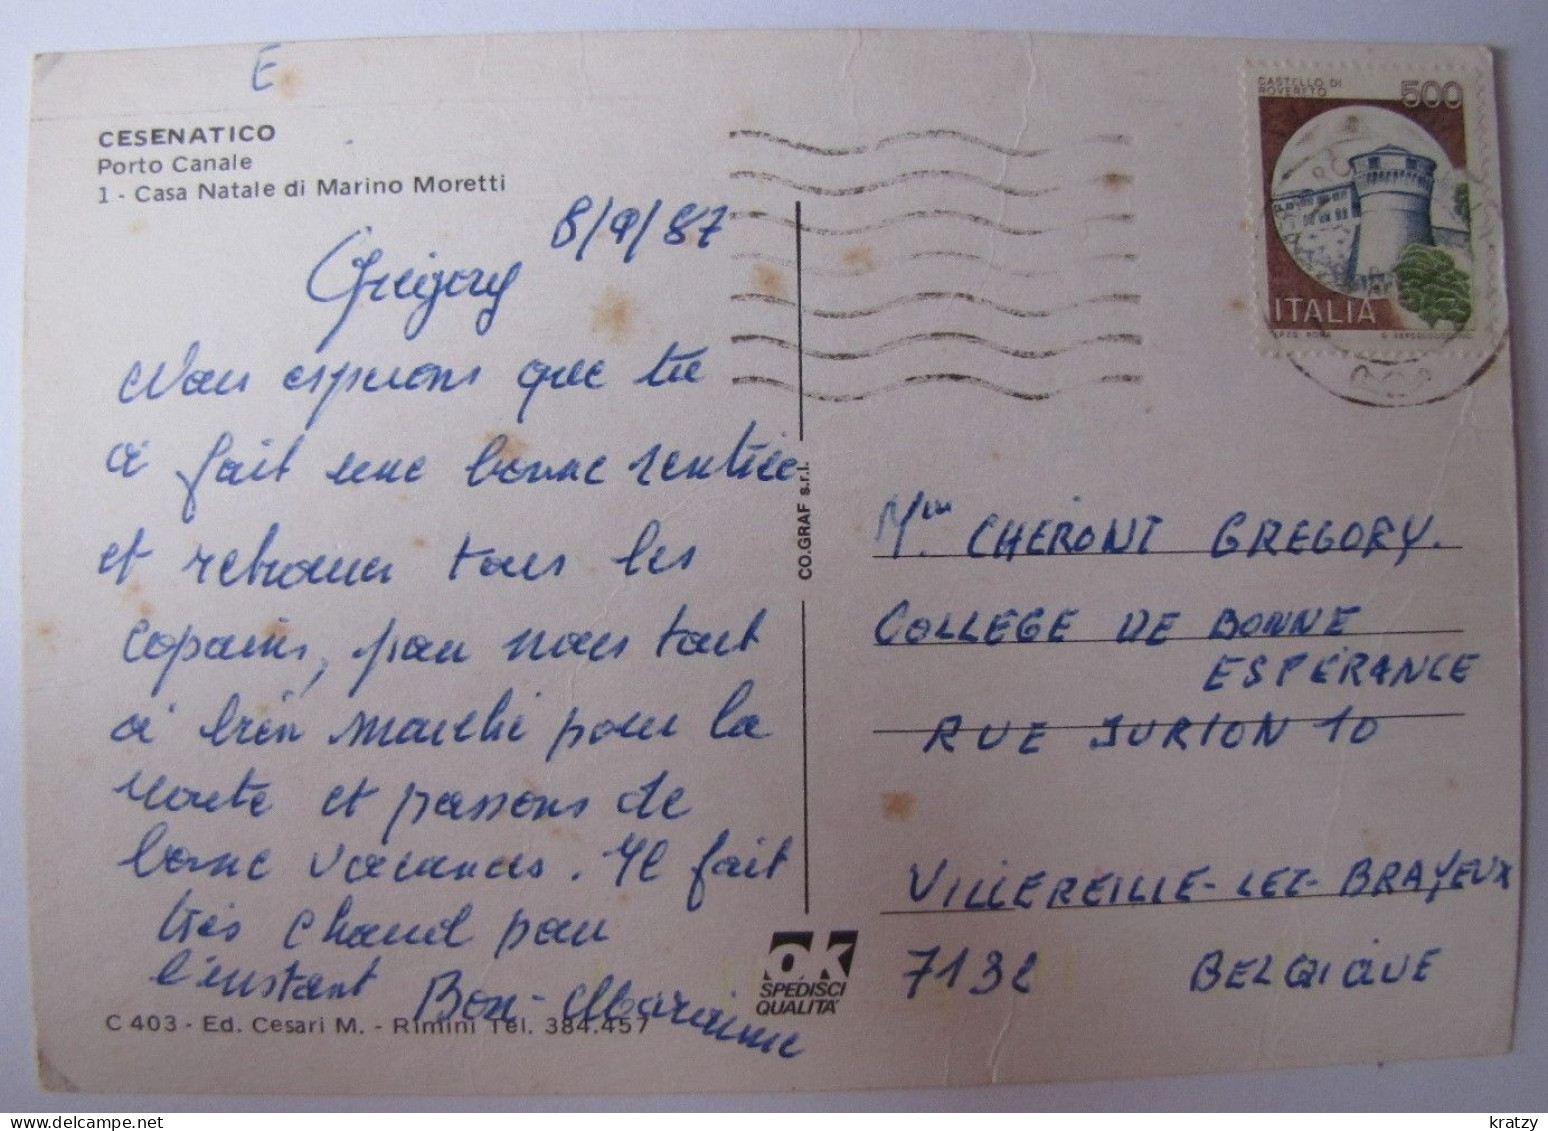 E
CESENATICO
Porto Canale
1 - Casa Natale di Marino Moretti
8/9/87
Grégory
Nous espérons que tu
a fait une bonne rentrée
et retrouver tous les
copains, pour nous tout
a bien marché pour la
route et passons de
bonne vacances. Il fait
très chaud pour
l'instant
Bon-Marianne
C 403 - Ed. Cesari M. - Rimini Tel. 384.457
CO.GRAF s.r.l.
OK
SPEDISCI
QUALITA'
CASTELLO DI
ROVERETO
500
ITALIA
CHERONT GREGORY.
COLLEGE DE BONNE
ESPÉRANCE
RUE JURION 10
VILLEREILLE-LEZ-BRAYEUX
7132 BELGIQUE
kratzy